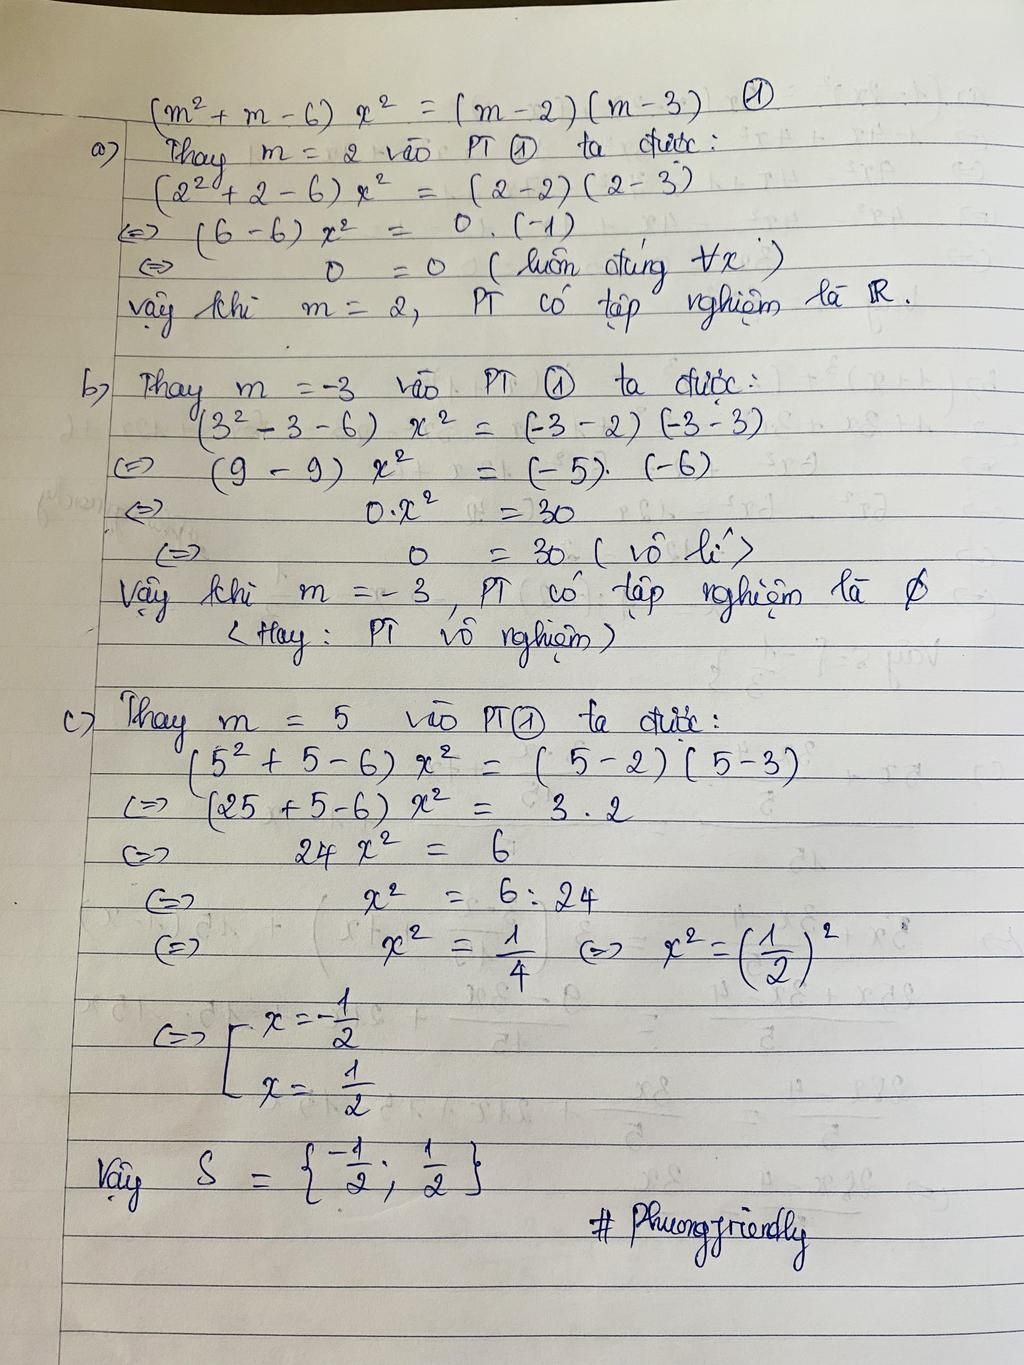 (m² + m - 6) x² = (m - 2)(m - 3) ①
a) Thay m = 2 vào PT ① ta được:
(2² + 2 - 6) x² = (2 - 2)(2 - 3)
<=> (6 - 6) x² = 0 . (-1)
<=> 0 = 0 (luôn đúng ∀x)
vậy khi m = 2, PT có tập nghiệm là ℝ.
b) Thay m = -3 vào PT ① ta được:
(3² - 3 - 6) x² = (-3 - 2)(-3 - 3)
<=> (9 - 9) x² = (-5). (-6)
<=> 0.x² = 30
<=> 0 = 30 (vô lí)
Vậy khi m = -3, PT có tập nghiệm là ∅
(Hay: PT vô nghiệm)
c) Thay m = 5 vào PT ① ta được:
(5² + 5 - 6) x² = (5 - 2)(5 - 3)
<=> (25 + 5 - 6) x² = 3 . 2
<=> 24 x² = 6
<=> x² = 6 : 24
<=> x² = 1/4 <=> x² = (1/2)²
<=> [ x = -1/2
x = 1/2
Vậy S = {-1/2; 1/2}
# Phuongfriendly